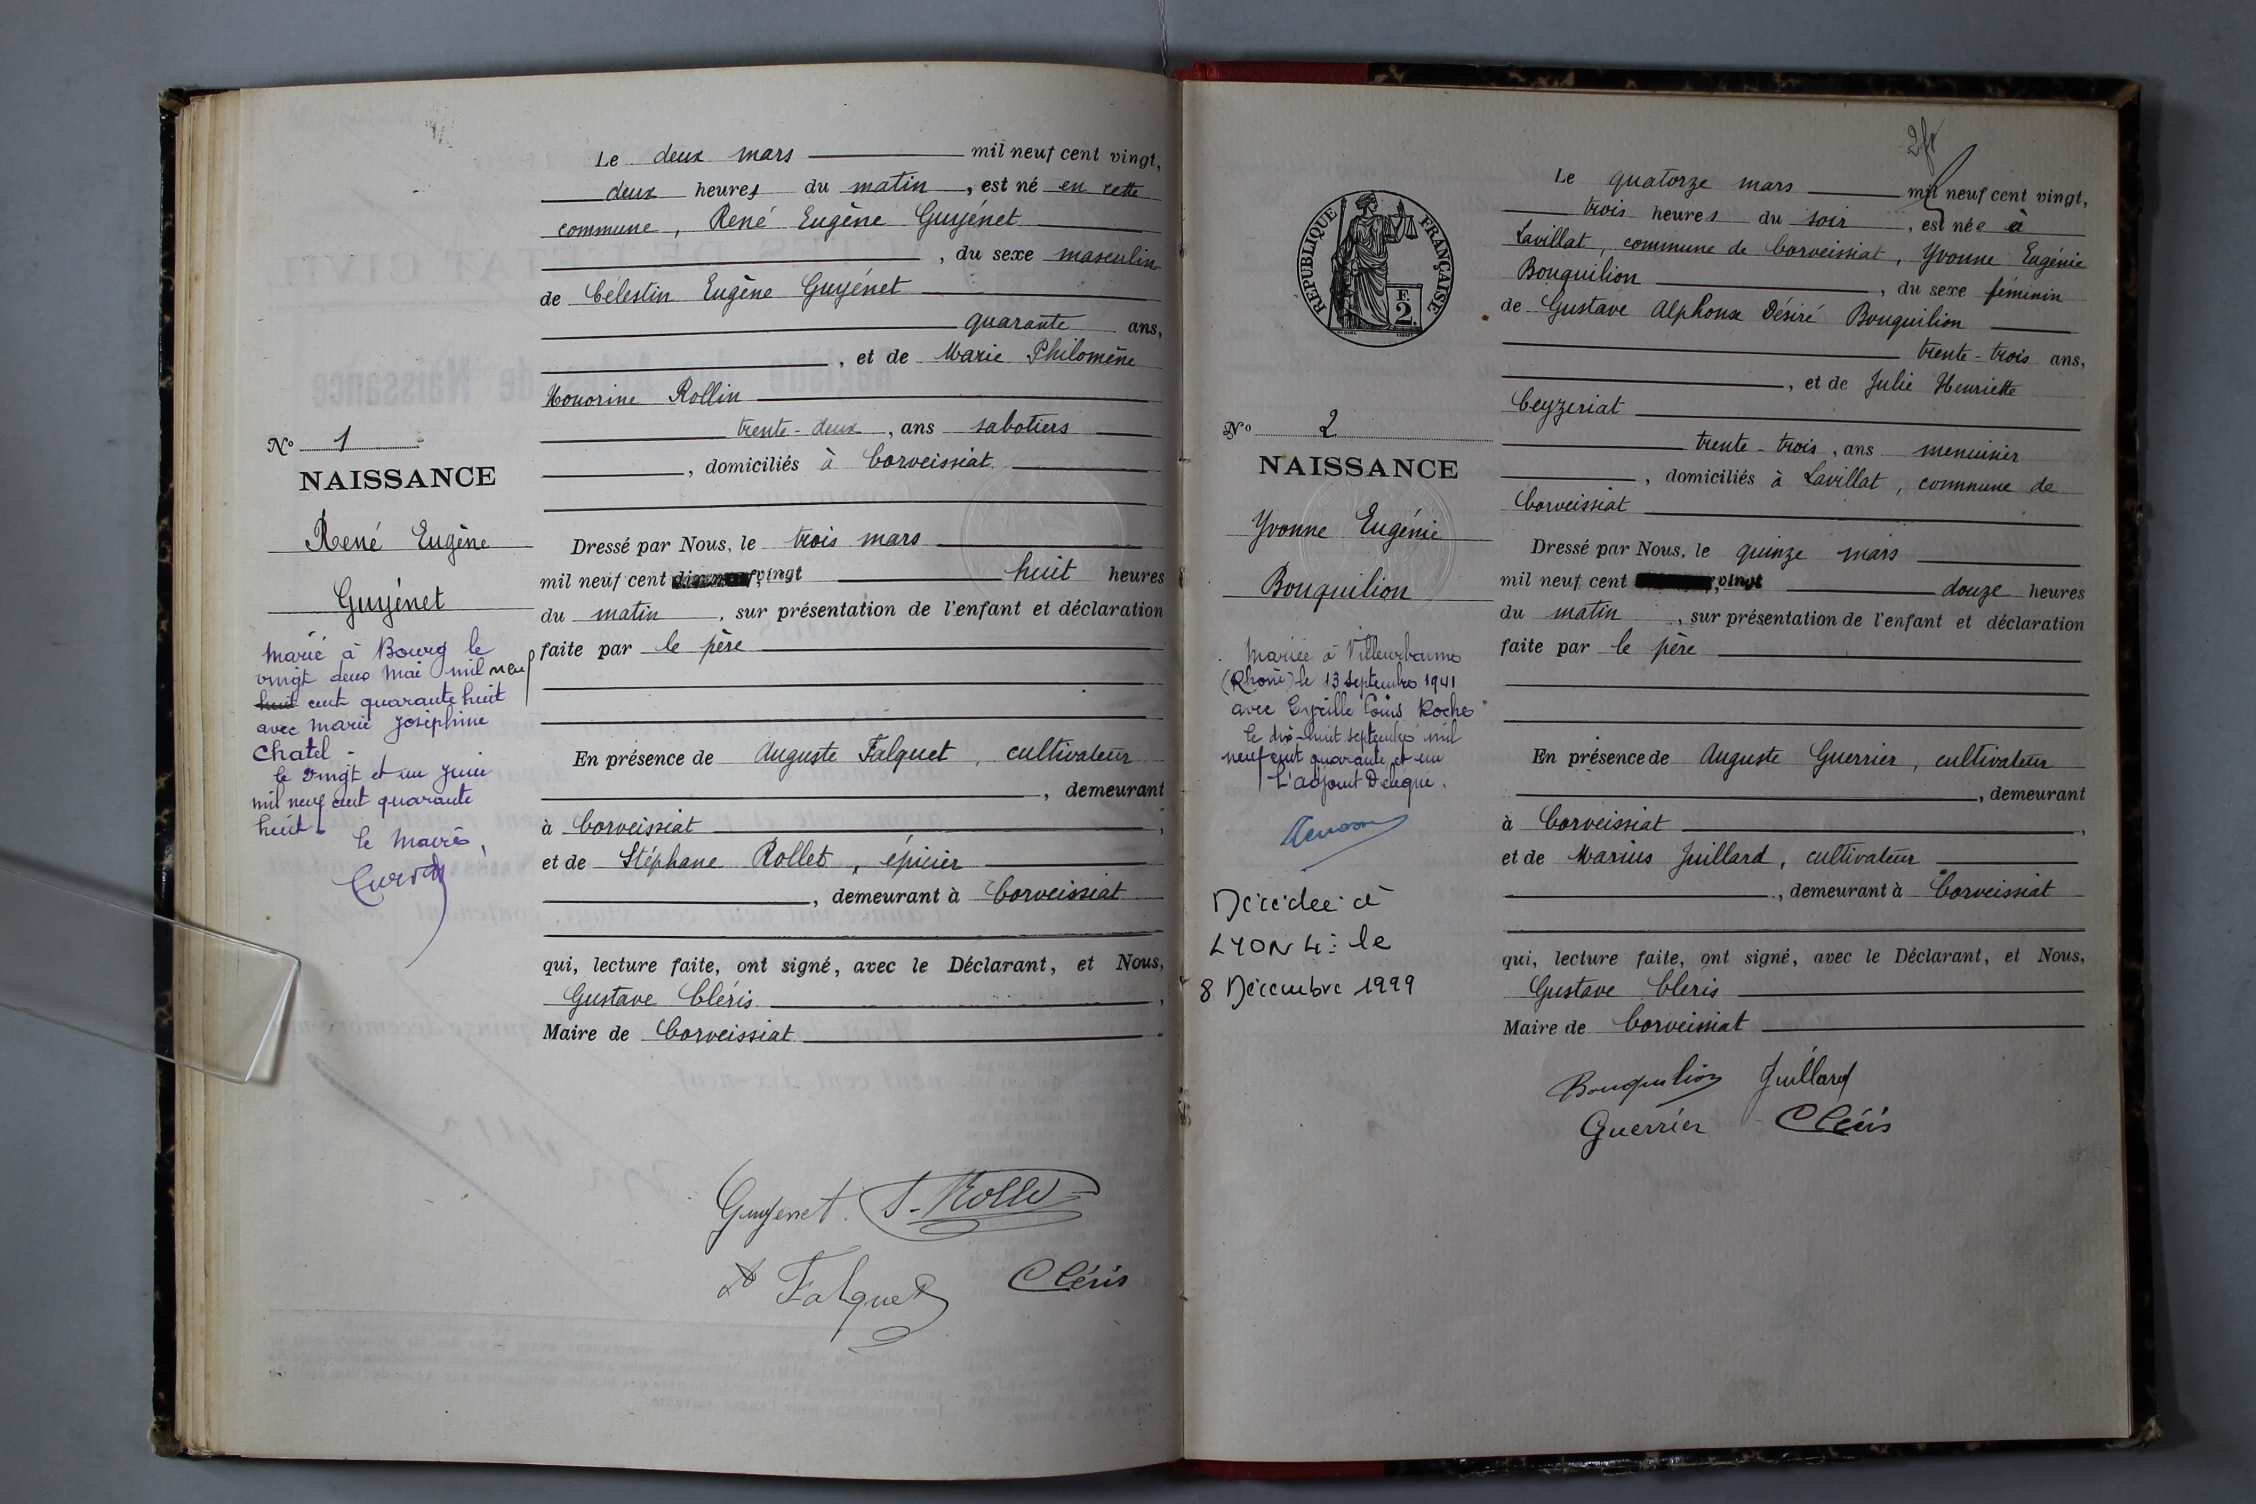 Le deux mars mil neuf cent vingt,
deux heures du matin, est né en cette
commune, René Eugène Guyénet
, du sexe masculin
de Célestin Eugène Guyénet
quarante ans,
, et de Marie Philomène
Honorine Rollin
trente-deux, ans sabotiers
, domiciliés à Corveissiat
N° 1
NAISSANCE
René Eugène
Guyénet
Marié à Bourg le
vingt deux Mai mil neuf
huit cent quarante huit
avec Marie Joséphine
Chatel -
le vingt et un Juin
mil neuf cent quarante
huit.
le Maire,
Dressé par Nous, le trois mars
mil neuf cent vingt huit heures
du matin, sur présentation de l'enfant et déclaration
faite par le père
En présence de Auguste Falquet, cultivateur
, demeurant
à Corveissiat,
et de Stéphane Rollet, épicier
, demeurant à Corveissiat
qui, lecture faite, ont signé, avec le Déclarant, et Nous,
Gustave Cléris,
Maire de Corveissiat.
Guyenet. S. Rollet
Falquet Cléris
2 fr
Le quatorze mars mil neuf cent vingt,
trois heures du soir, est née à
Lavillat, commune de Corveissiat, Yvonne Eugénie
Bouquilion, du sexe féminin
de Gustave Alphonse Désiré Bouquilion
trente-trois ans,
, et de Julie Henriette
Ceyzeriat
trente-trois, ans menuisier
, domiciliés à Lavillat, commune de
Corveissiat
RÉPUBLIQUE FRANÇAISE
F.
2
N° 2
NAISSANCE
Yvonne Eugénie
Bouquilion
Mariée à Villeurbanne
(Rhône) le 13 septembre 1941
avec Cyrille Louis Roche
le dix-huit septembre mil
neuf cent quarante et un
L'adjoint Délégué.
Décédée à
LYON 4è le
8 Décembre 1999
Dressé par Nous, le quinze mars
mil neuf cent vingt douze heures
du matin, sur présentation de l'enfant et déclaration
faite par le père
En présence de Auguste Guerrier, cultivateur
, demeurant
à Corveissiat,
et de Marius Juillard, cultivateur
, demeurant à Corveissiat
qui, lecture faite, ont signé, avec le Déclarant, et Nous,
Gustave Cleris
Maire de Corveissiat
Bouquilion Juillard
Guerrier Cléris